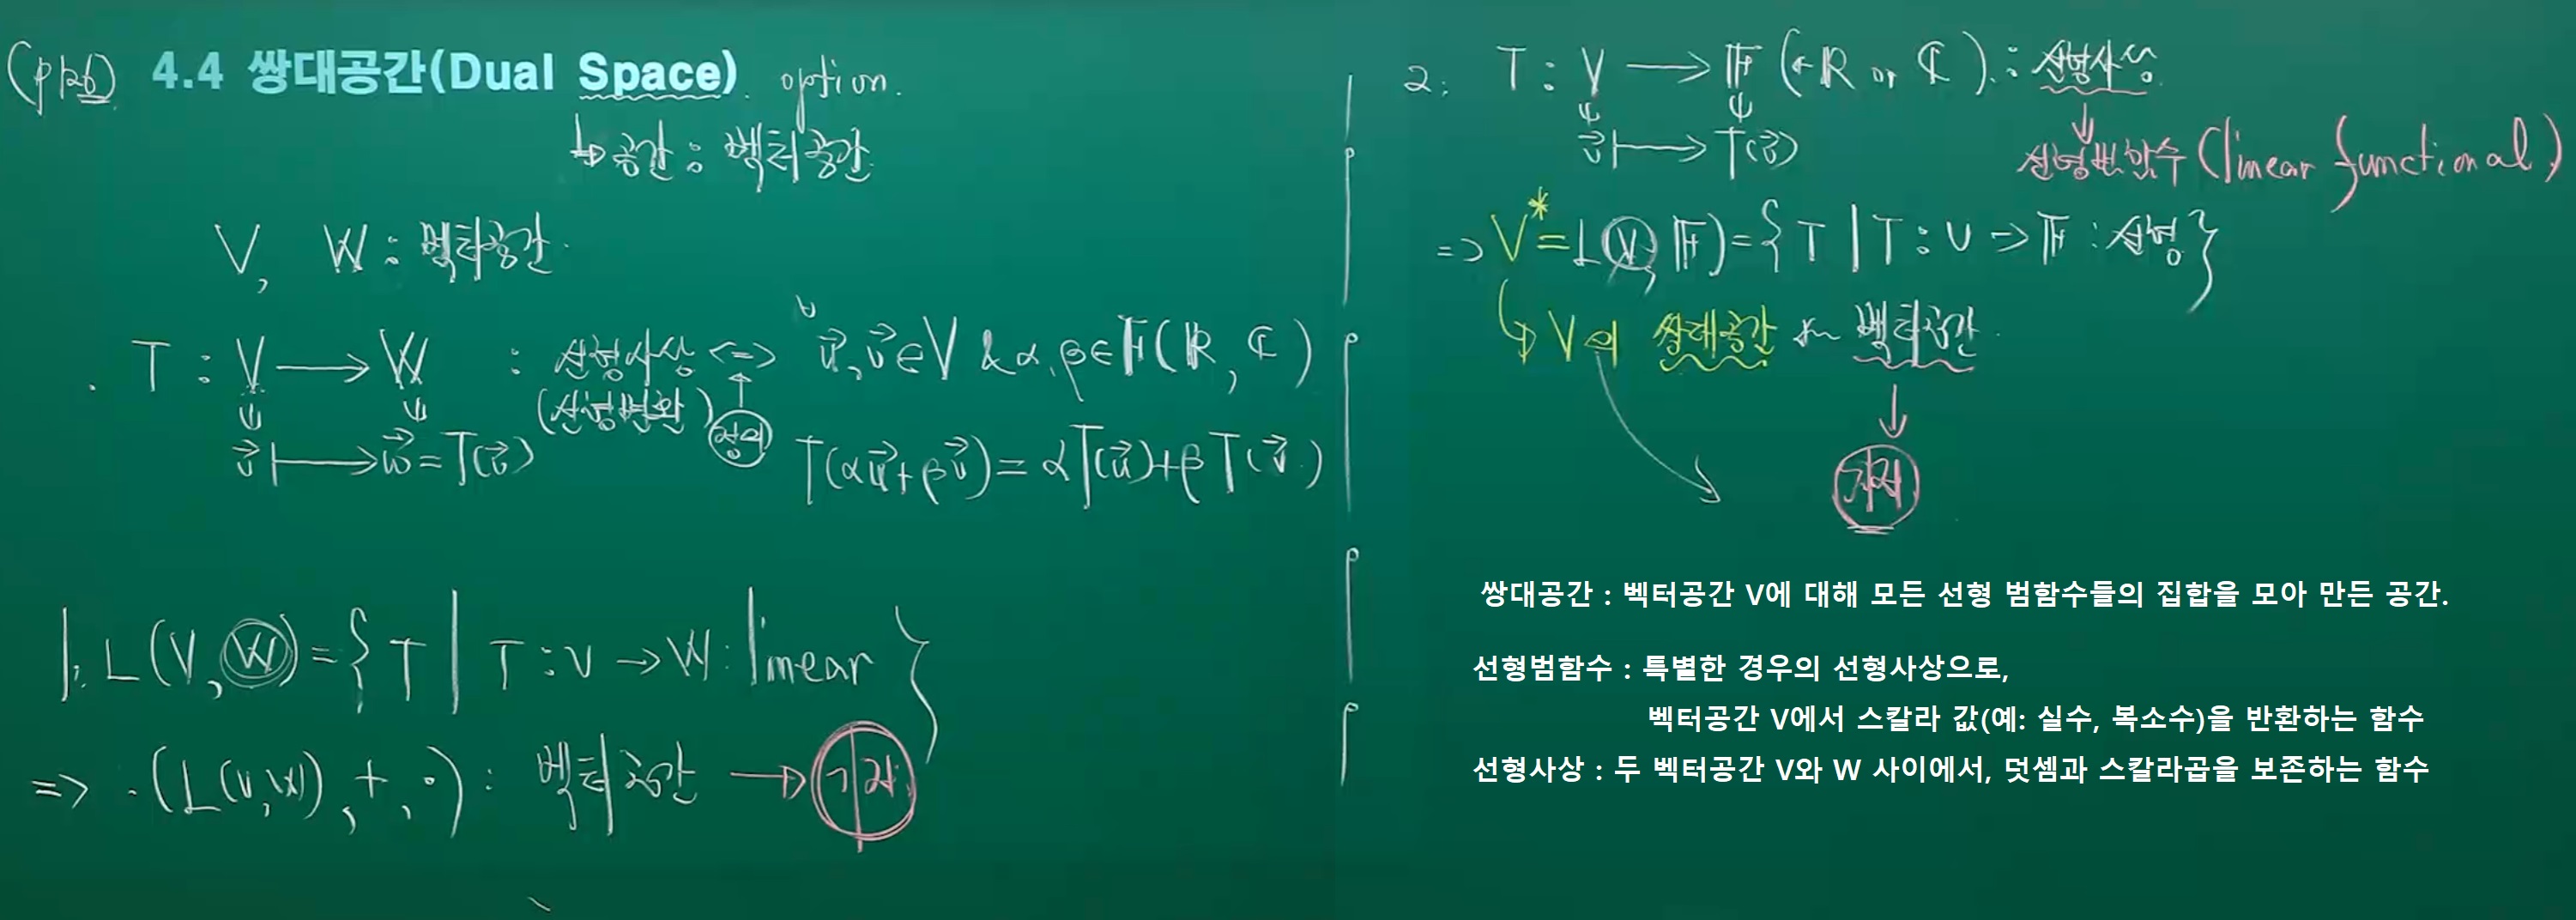 (p126) 4.4 쌍대공간(Dual Space). option.
↳ 공간 : 벡터공간.
V, W : 벡터공간.
. T : V → W : 선형사상 <=> ∀ u⃗, v⃗ ∈ V & α, β ∈ F(R, C)
(선형변환) ↑ 정의
v⃗ ↦ w⃗ = T(v⃗)
T(αu⃗ + βv⃗) = αT(u⃗) + βT(v⃗)
1. L(V, W) = { T | T : V → W : linear }
=> . (L(V, W), +, ·) : 벡터공간 → 기저
2. T : V → F (← R or C) : 선형사상
v⃗ ↦ T(v⃗)
선형범함수 (linear functional)
=> V* = L(V, F) = { T | T : V → F : 선형 }
↳ V의 쌍대공간 ← 벡터공간.
↓
기저
쌍대공간 : 벡터공간 V에 대해 모든 선형 범함수들의 집합을 모아 만든 공간.
선형범함수 : 특별한 경우의 선형사상으로,
벡터공간 V에서 스칼라 값(예: 실수, 복소수)을 반환하는 함수
선형사상 : 두 벡터공간 V와 W 사이에서, 덧셈과 스칼라곱을 보존하는 함수